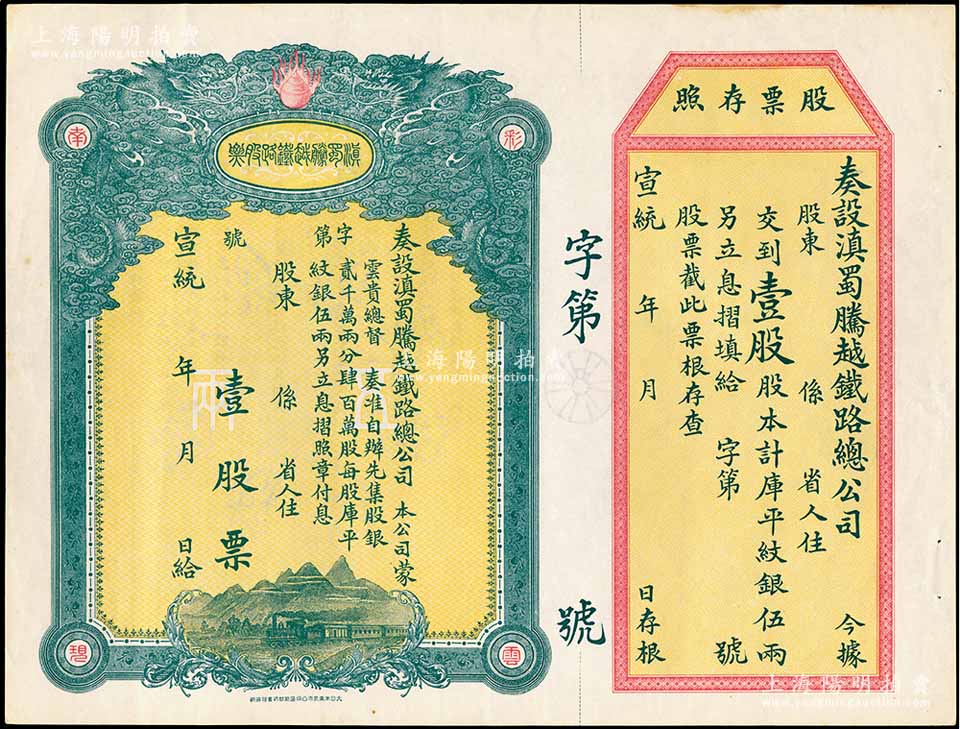 上海陽明拍賣
www.yangmingauction.com
股票存照
奏設滇蜀騰越鐵路總公司 今據
股東 係 省人住
交到壹股股本計庫平紋銀伍兩
另立息摺填給 字第 號
股票截此票根存查
宣統 年 月 日存根
字第 號
彩
雲
南
現
滇蜀騰越鐵路股票
奏設滇蜀騰越鐵路總公司 本公司蒙
雲貴總督 奏准自辦先集股銀
貳千萬兩分肆百萬股每股庫平
紋銀伍兩另立息摺照章付息
字第
股東 係 省人住
號
壹股票
宣統 年 月 日給
伍
兩
上海陽明拍賣
www.yangmingauction.com
上海陽明拍賣
www.yangmingauction.com